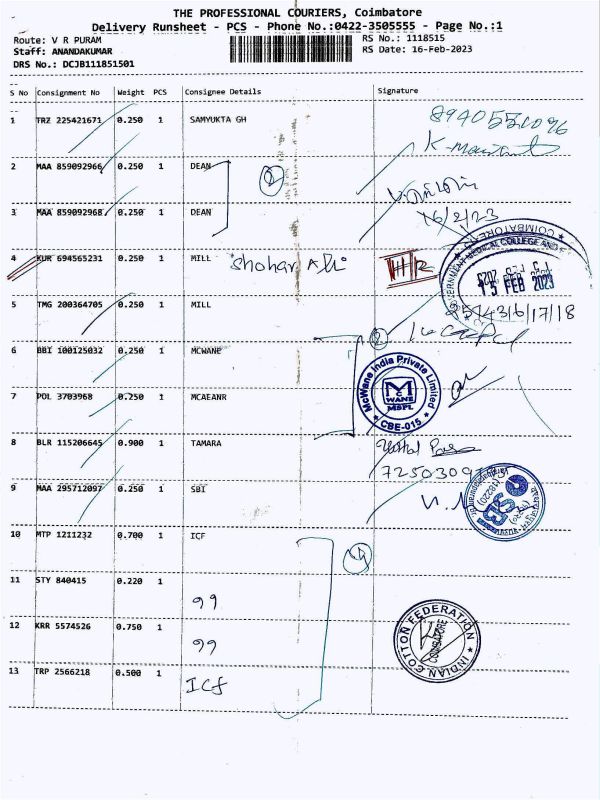 THE PROFESSIONAL COURIERS, Coimbatore
Delivery Runsheet - PCS - Phone No.:0422-3505555 - Page No.:1
Route: V R PURAM RS No.: 1118515
Staff: ANANDAKUMAR RS Date: 16-Feb-2023
DRS No.: DCJB111851501
S No Consignment No Weight PCS Consignee Details Signature
1 TRZ 225421671 0.250 1 SAMYUKTA GH
2 MAA 859092966 0.250 1 DEAN 2
3 MAA 859092968 0.250 1 DEAN
16/2/23
4 KUR 694565231 0.250 1 MILL
GOVERNMENT MEDICAL COLLEGE AND
COIMBATORE
15 FEB 2023
5 TMG 200364705 0.250 1 MILL
6 BBI 100125032 0.250 1 MCWANE 2
McWane India Private Limited
McWANE
MSPL
CBE-015
7 POL 3703968 0.250 1 MCAEANR
8 BLR 115206645 0.900 1 TAMARA
9 MAA 295712097 0.250 1 SBI
SBI
10 MTP 1211232 0.700 1 ICF 4
11 STY 840415 0.220 1 99
12 KRR 5574526 0.750 1 99
INDIAN COTTON FEDERATION
COIMBATORE
13 TRP 2566218 0.500 1 ICF